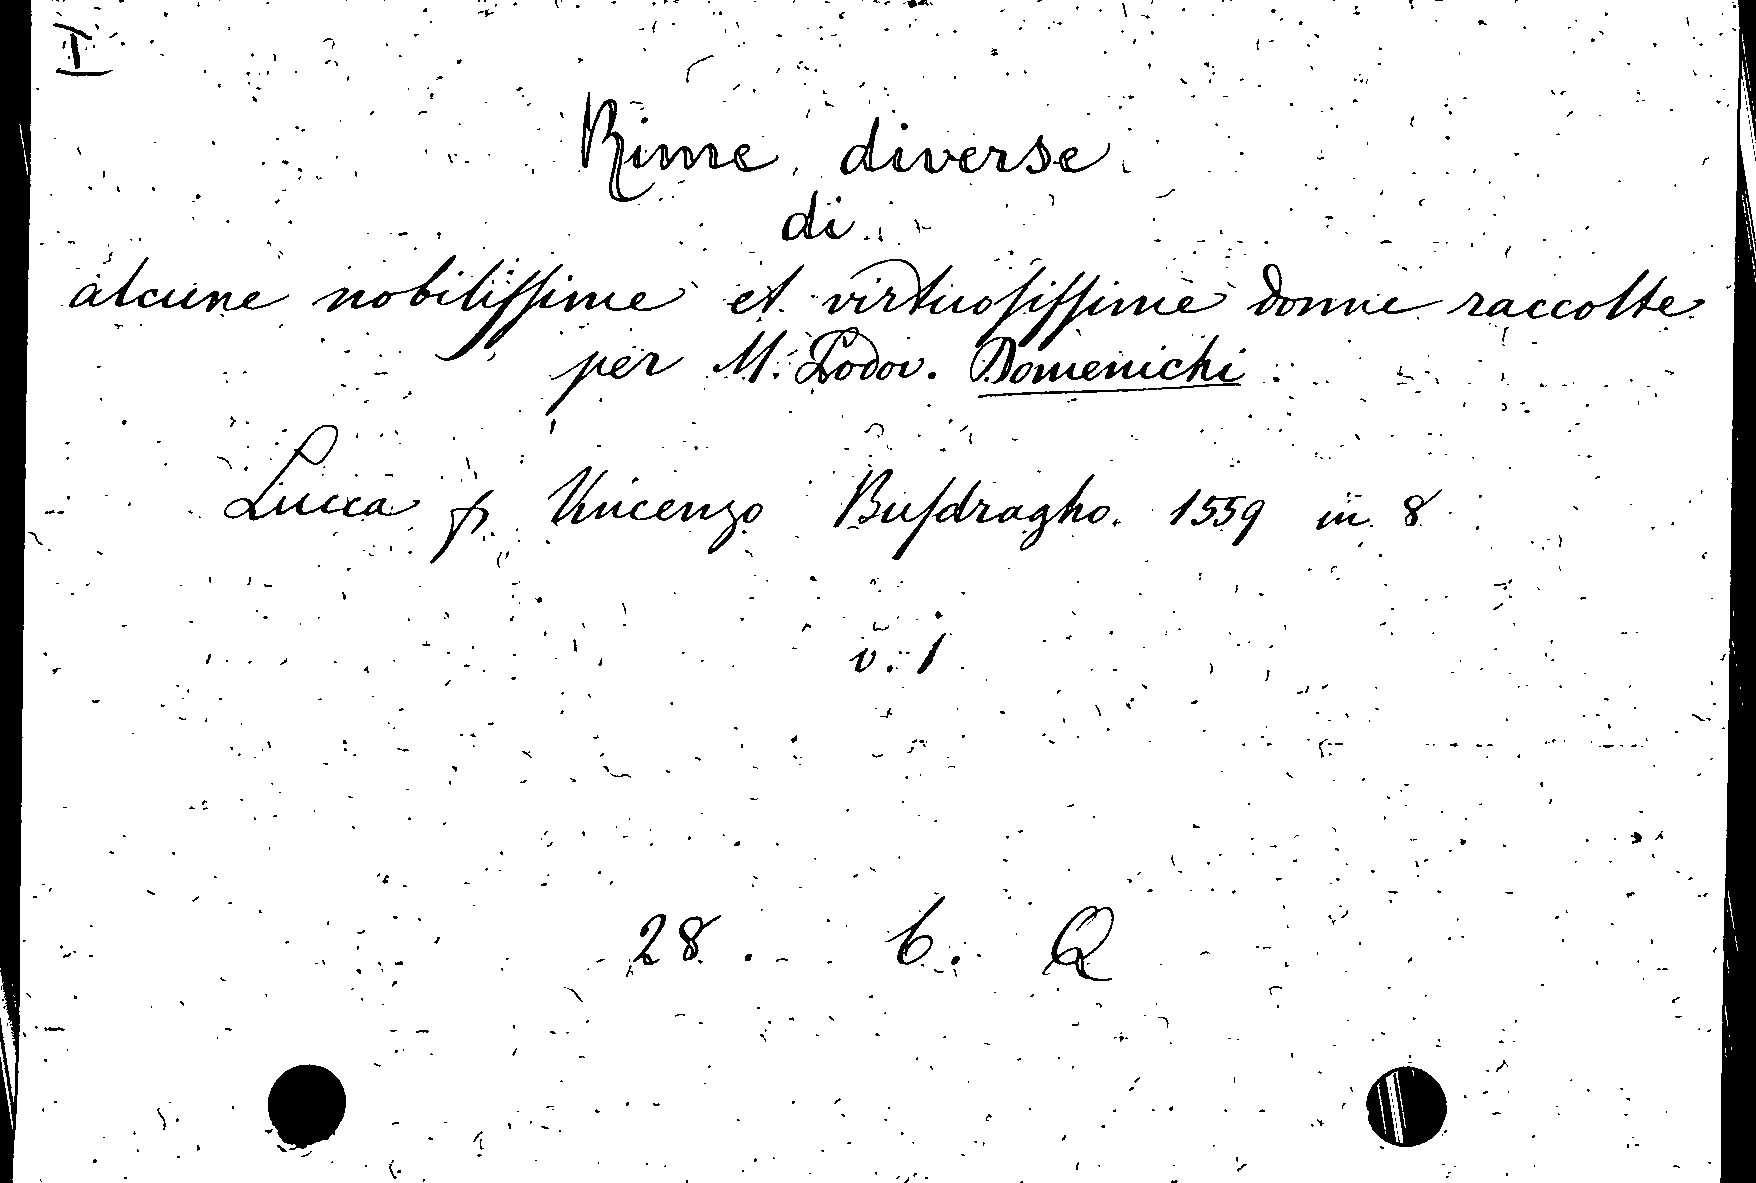 Rime diverse
di
alcune nobiliſſime et virtuoſiſſime donne raccolte
per M. Lodov. Domenichi
Lucca p. Vincenzo Buſdragho. 1559 in 8
v. 1
28. 6. Q